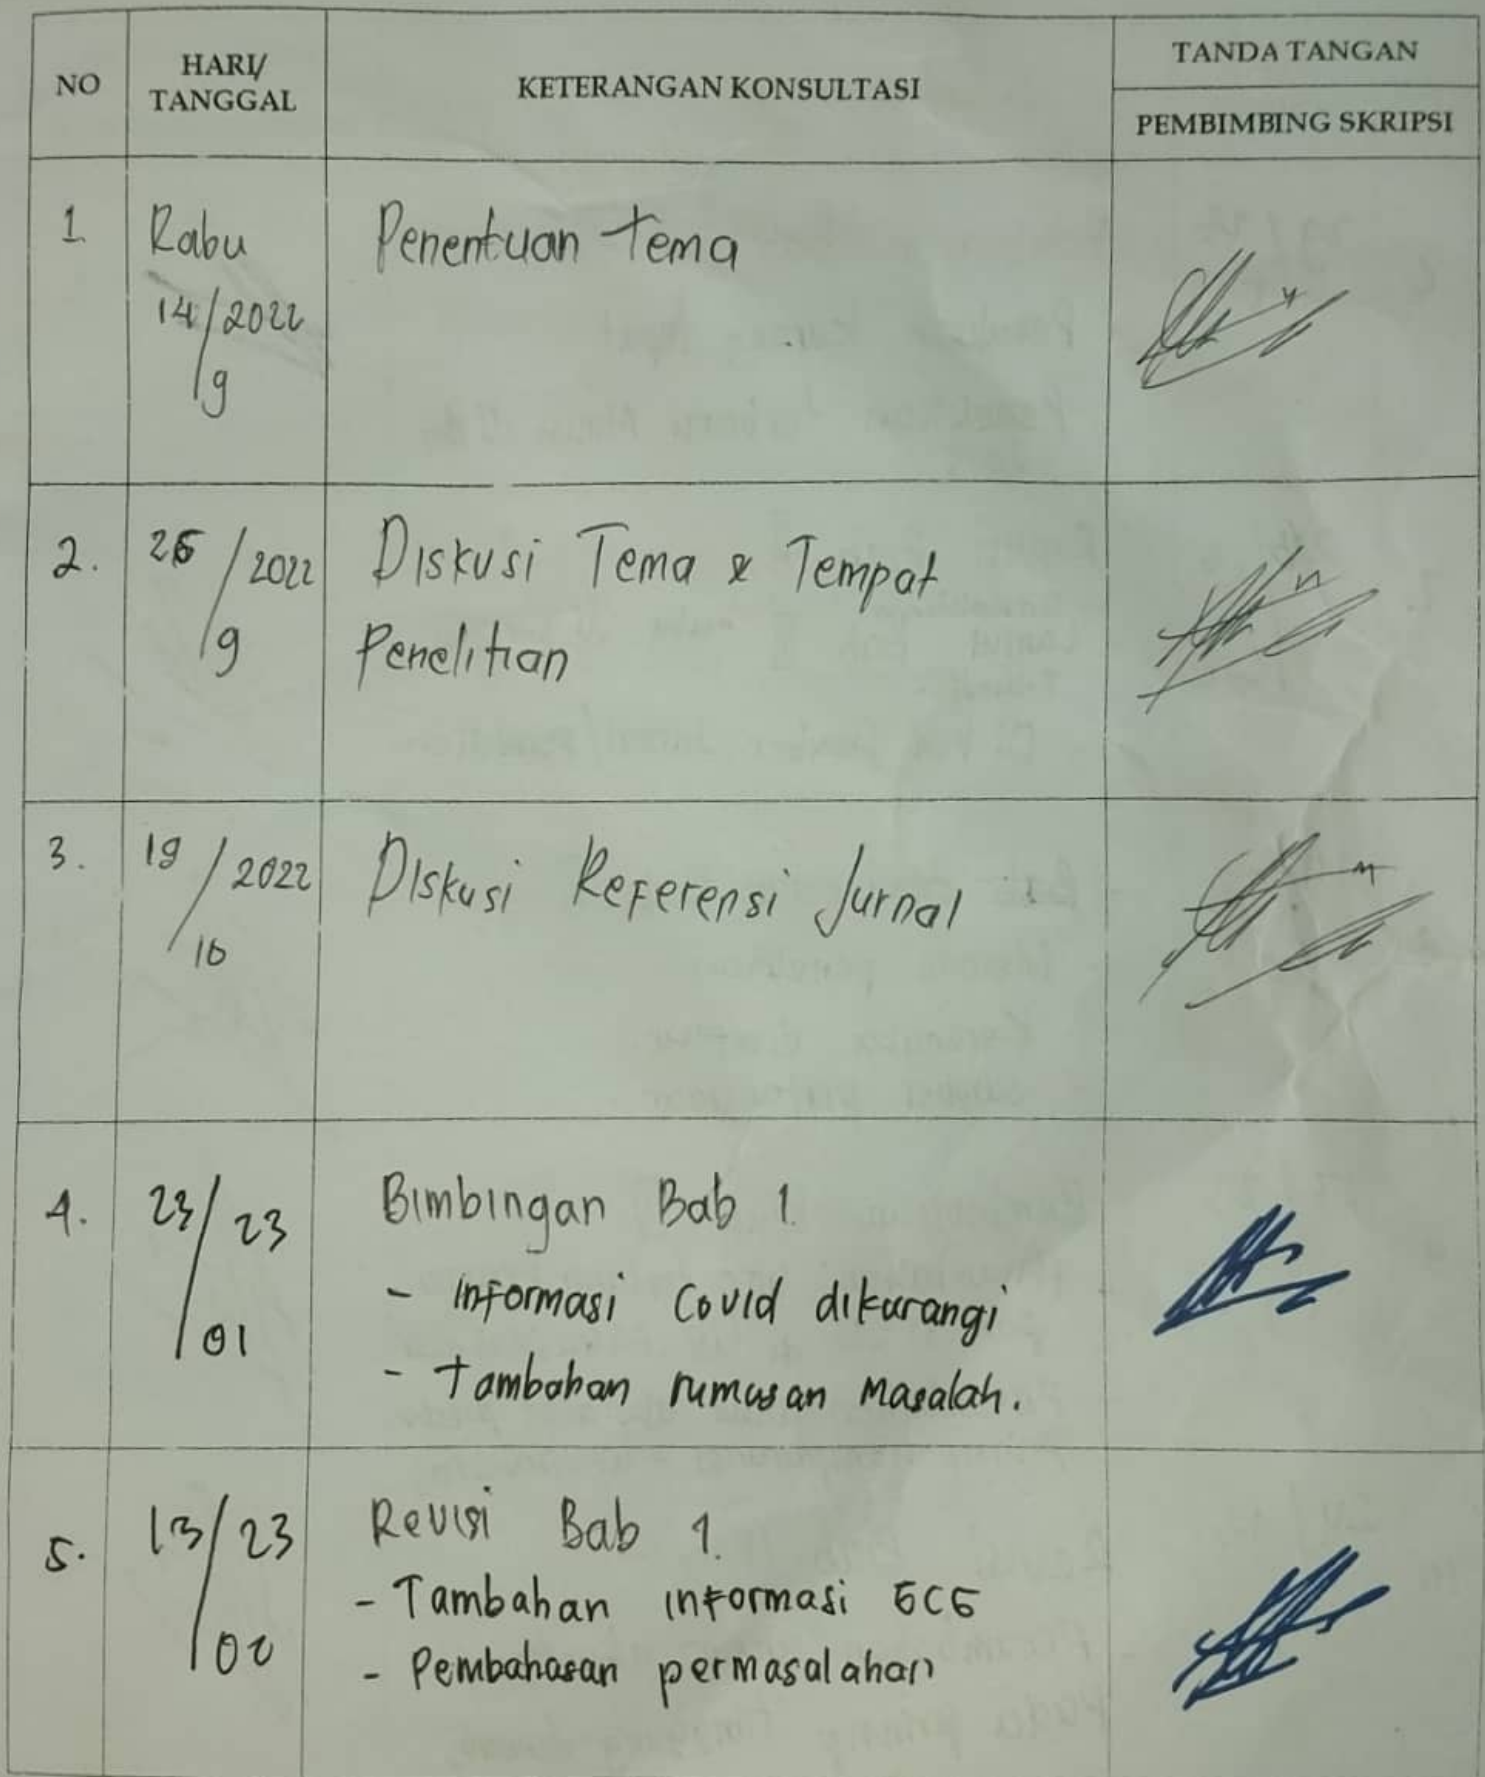 NO
HARI/
TANGGAL
KETERANGAN KONSULTASI
TANDA TANGAN
PEMBIMBING SKRIPSI
1.
Rabu
14/2022
9
Penentuan Tema
2.
/2022
9
Diskusi Tema & Tempat
Penelitian
3.
19/2022
10
Diskusi Referensi Jurnal
4.
23/23
01
Bimbingan Bab 1.
- Informasi Covid dikurangi
- Tambahan rumusan Masalah.
5.
13/23
Revisi Bab 1.
- Tambahan informasi
- Pembahasan permasalahan